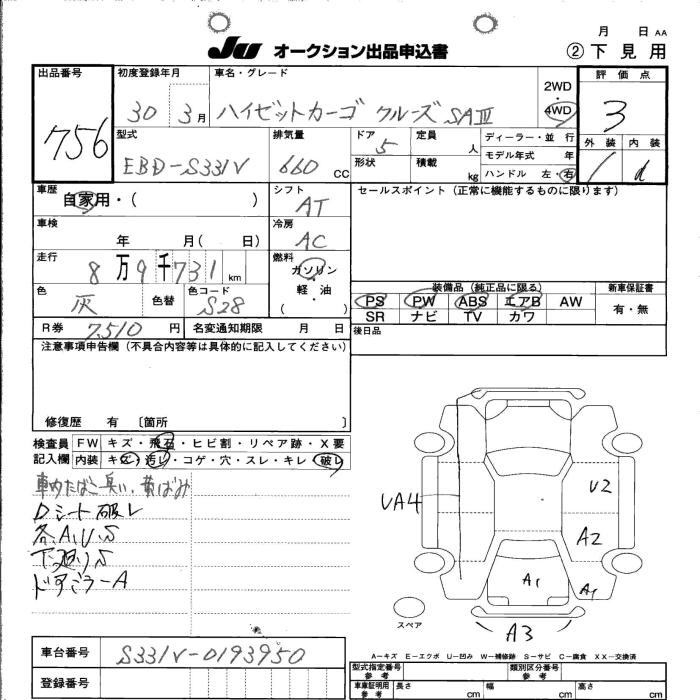 月 日 AA
JU オークション出品申込書 ②下見用
出品番号 756
初度登録年月 30 3月
車名・グレード ハイゼットカーゴ クルーズ SAⅢ
2WD・4WD
評価点 3
外装 内装
d
型式 EBD-S331V
排気量 660 CC
ドア 5
定員 人
形状
積載 kg
ディーラー・並行
モデル年式 年
ハンドル 左・右
車歴 自家用・( )
シフト AT
セールスポイント(正常に機能するものに限ります)
車検 年 月( 日)
冷房 AC
走行 8万9千731km
燃料 ガソリン・軽油 ( )
色 灰 色替
色コード S28
装備品(純正品に限る) 新車保証書
PS PW ABS エアB AW 有・無
SR ナビ TV カワ
R券 7,510円 名変通知期限 月 日
後日品
注意事項申告欄(不具合内容等は具体的に記入してください)
修復歴 有〔箇所 〕
検査員記入欄
FW キズ・飛石・ヒビ割・リペア跡・X要
内装 キズ・汚レ・コゲ・穴・スレ・キレ・破レ
車内たばこ臭い、黄ばみ
Dシート破レ
各A,U,S
下廻りS
ドアミラーA
UA4
U2
A2
A1
A1
A3
スペア
A-キズ E-エクボ U-凹み W-補修跡 S-サビ C-腐食 XX-交換済
車台番号 S331V-0193950
登録番号
型式指定番号 参考
類別区分番号 参考
車庫証明用 参考 長さ cm 幅 cm 高さ cm